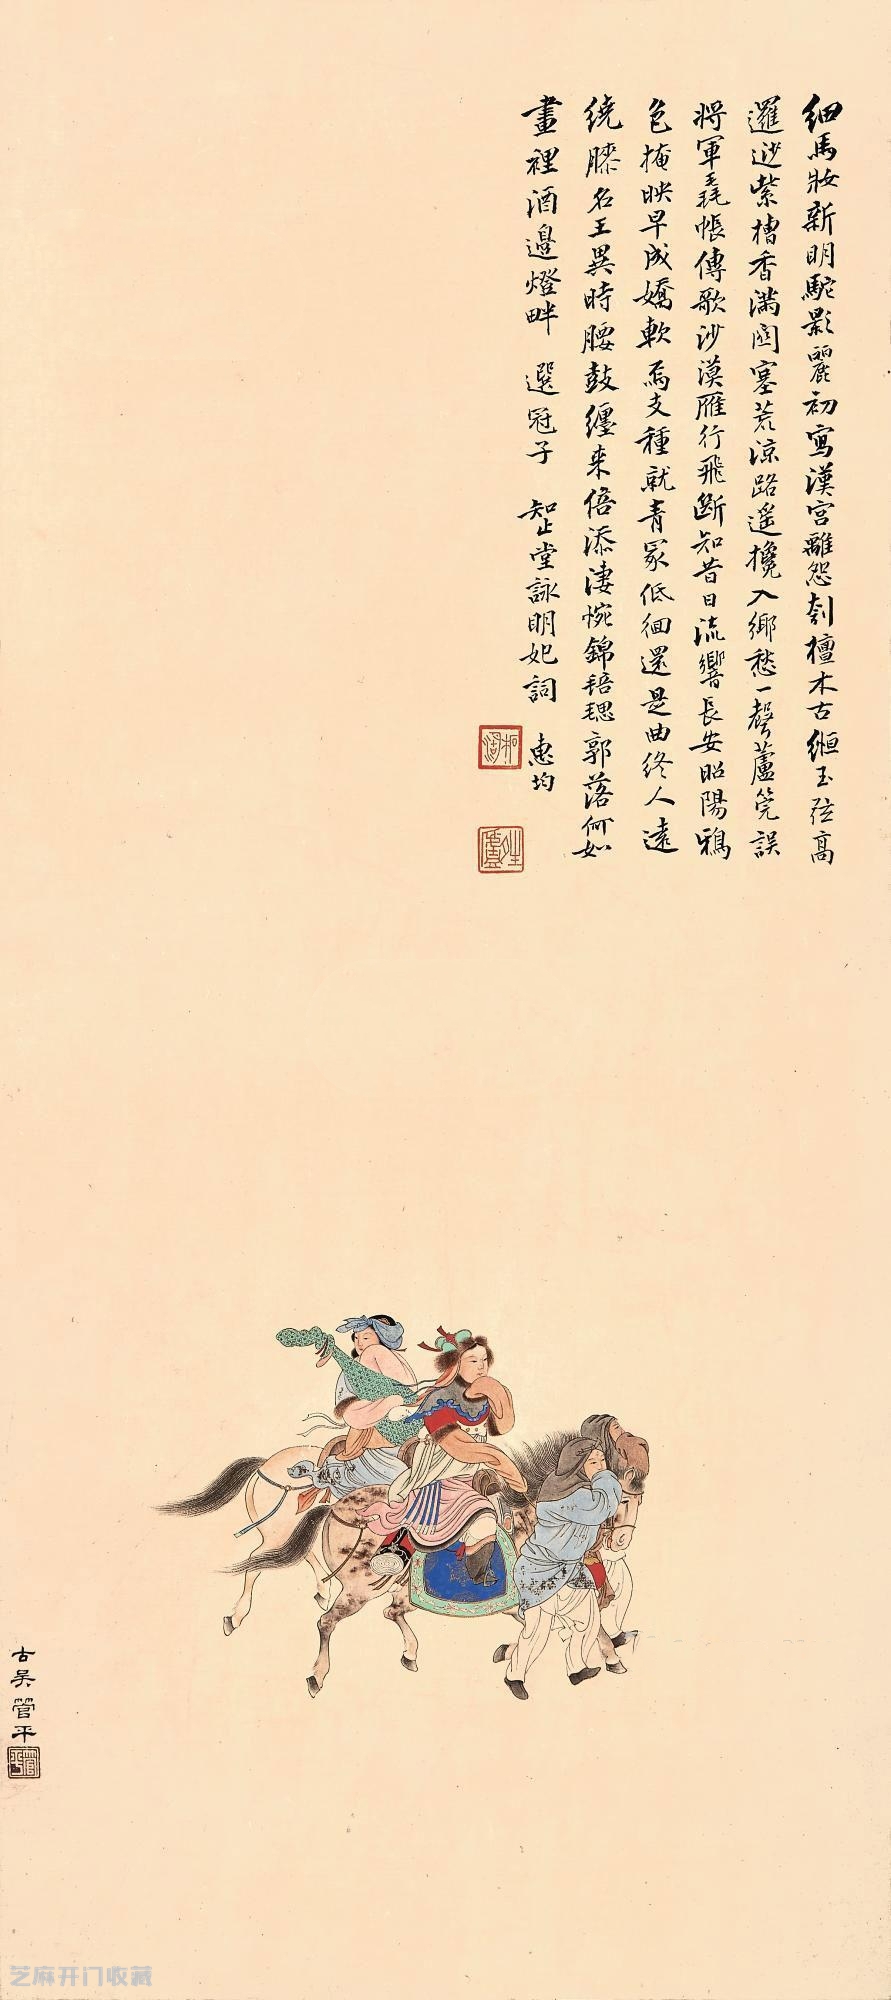 細馬妝新明駝影麗初寫漢宮離怨刳檀木古緪玉弦高
邏迆紫槽香滿関塞荒涼路遥攙入鄉愁一聲蘆筦誤
將軍毳帳傳歌沙漠雁行飛斷知昔日流響長安昭陽鴉
色掩映早成嬌軟焉支種就青冢低徊還是曲終人遠
繞膝名王異時腰鼓纏来倍添凄惋錦郭落何如
畫裡酒邊燈畔 選冠子 知止堂詠明妃詞 惠均
古吴管平
管平
芝麻开门收藏